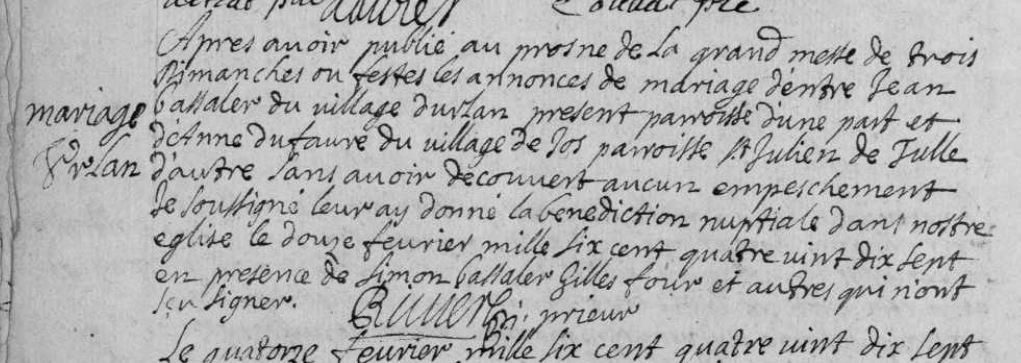 Apres avoir publié au prosne de La grand messe de trois
Dimanches ou festes les annonces de mariage d'entre Jean
mariage bassaler du village durlan present parroisse d'une part et
d'Anne dufaure du village de Jos parroisse St Julien de Tulle
Urlan d'autre sans avoir découvert aucun empeschement
Je soussigné leur ay donné la benediction nuptiale dans nostre
eglise le douze fevrier mille six cent quatre vint dix sept
en presence de simon bassaler Gilles four et autres qui n'ont
sçu signer. prieur
Le quatorze fevrier mille six cent quatre vint dix sept